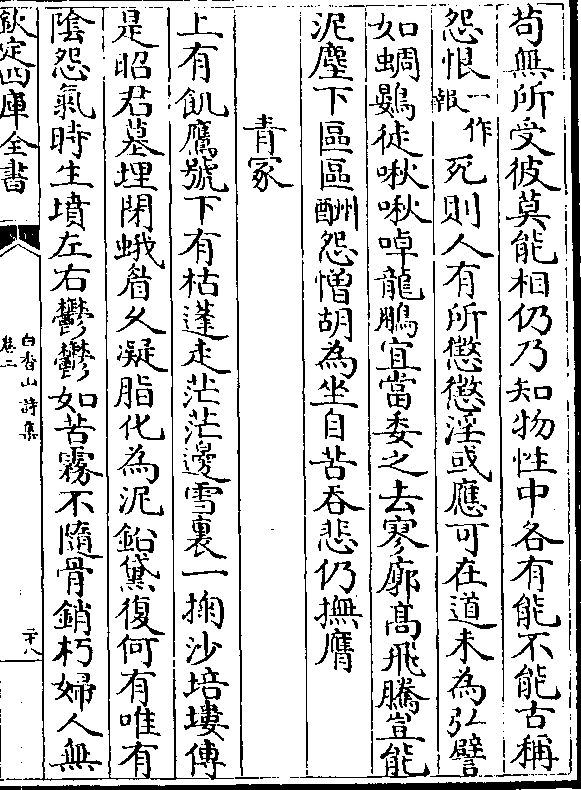 苟無所受彼莫能相仍乃知物性中各有能不能古稱
怨恨一作報死則人有所懲懲淫或應可在道未為弘譬
如蜩鷃徒啾啾啅龍鵬宜當委之去寥廓髙飛騰豈能
泥塵下區區酬怨憎胡為坐自苦吞悲仍撫膺
青冢
上有飢鷹號下有枯蓬走茫茫邊雪裏一掬沙培塿傳
是昭君墓埋閉蛾眉久凝脂化為泥鉛黛復何有唯有
陰怨氣時生墳左右鬱鬱如苦霧不隨骨銷朽婦人無
欽定四庫全書
白香山詩集
卷二
二十八